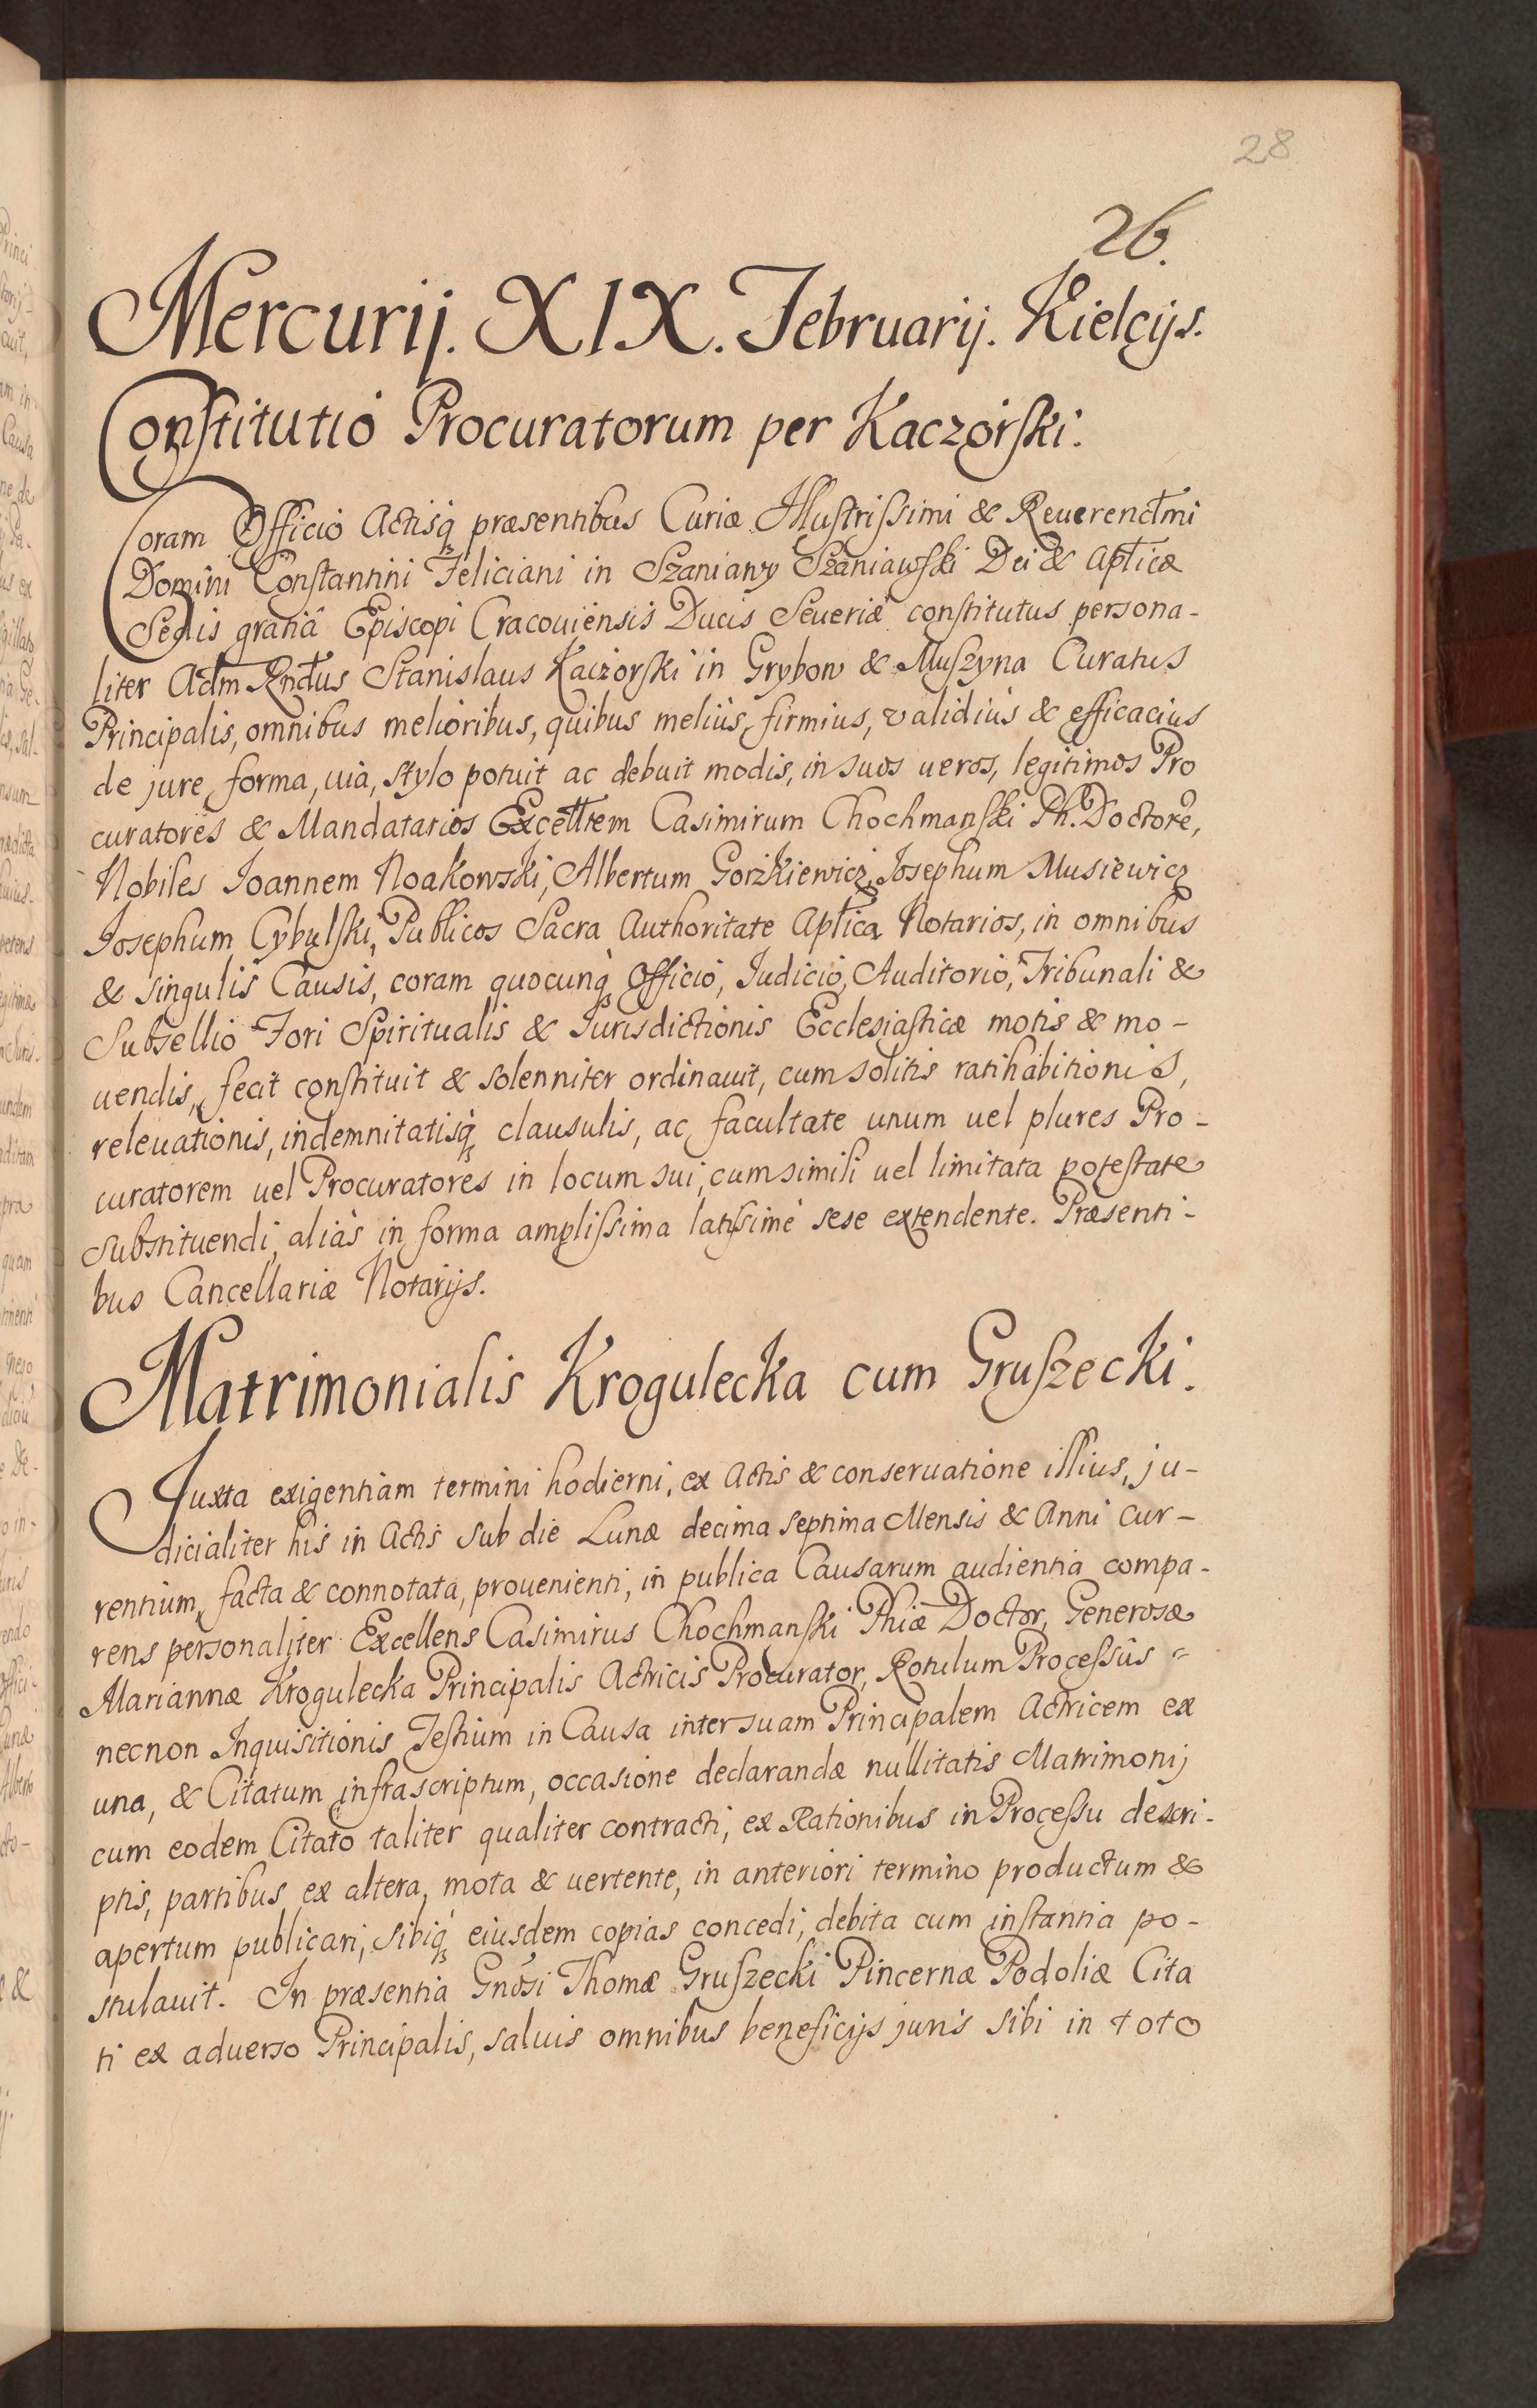 28
26.
Mercurij. XIX. Februarij. Kielcijs.
Constitutio Procuratorum per Kaczorski.
Coram Officio Actisq́ præsentibus Curiæ Illustrissimi & Reuerendm̃i
Domini Constantini Feliciani in Szaniawy Szaniawski Dei & Apl̃icæ
Sedis gratiâ Episcopi Cracouiensis Ducis Seueriæ constitutus persona-
liter Adm Rnd̃us Stanislaus Kaczorski in Grybow & Muszyna Curatus
Principalis, omnibus melioribus, quibus meliús, firmius, validiús & efficacius
de jure, forma, uia, stylo potuit ac debuit modis, in suos ueros, legitimos Pro
curatores & Mandatarios Excell̃tem Casimirum Chochmanski Ph. Doctorẽ,
Nobiles Ioannem Noakowski, Albertum Gorzkiewicz, Josephum Musiewicz
Josephum Cybulski, Publicos Sacra Authoritate Apl̃ica Notarios, in omnibus
& singulis Causis, coram quocunq́ Officio, Iudicio, Auditorio, Tribunali &
Subsellio Fori Spiritualis & Iurisdictionis Ecclesiasticæ motis & mo-
uendis, fecit constituit & solenniter ordinauit, cum solitis ratihabitionis,
releuationis, indemnitatisq́ clausulis, ac facultate unum uel plures Pro-
curatorem uel Procuratores in locum sui, cum simili uel limitata potestate
substituendi, aliàs in forma amplissima latissimé sese extendente. Præsenti-
bus Cancellariæ Notarijs.
Matrimonialis Krogulecka cum Gruszecki.
Juxta exigentiam termini hodierni, ex Actis & conseruatione illius, ju-
dicialiter his in Actis sub die Lunæ decima septima Mensis & Anni cur-
rentium, facta & connotata, prouenienti, in publica Causarum audientia compa-
rens personaliter Excellens Casimirus Chochmanski Phiæ̃ Doctor, Generosæ
Mariannæ Krogulecka Principalis Actricis Procurator, Rotulum Processûs =
necnon Inquisitionis Testium in Causa inter suam Principalem Actricem ex
una, & Citatum infrascriptum, occasione declarandæ nullitatis Matrimonij
cum eodem Citato taliter qualiter contracti, ex Rationibus in Processu descri-
ptis, partibus ex altera, mota & uertente, in anteriori termino productum &
apertum publicari, sibiq́ eiusdem copias concedi, debita cum instantia po-
stulauit. In præsentia Gnõsi Thomæ Gruszecki Pincernæ Podoliæ Cita
ti ex aduerso Principalis, saluis omnibus beneficijs juris sibi in toto